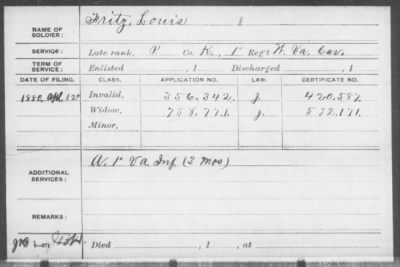 NAME OF SOLDIER: Fritz, Louis
SERVICE: Late rank, P Co. K, 1" Reg't W. Va. Cav.
TERM OF SERVICE: Enlisted , 1 Discharged , 1
DATE OF FILING. CLASS. APPLICATION NO. LAW. CERTIFICATE NO.
1880, Apl. 12" Invalid, 356.342. J. 420.587.
Widow, 758.771 J. 572.171.
Minor,
ADDITIONAL SERVICES: A. 1" Va Inf (3 mos)
REMARKS:
Died , 1 , at